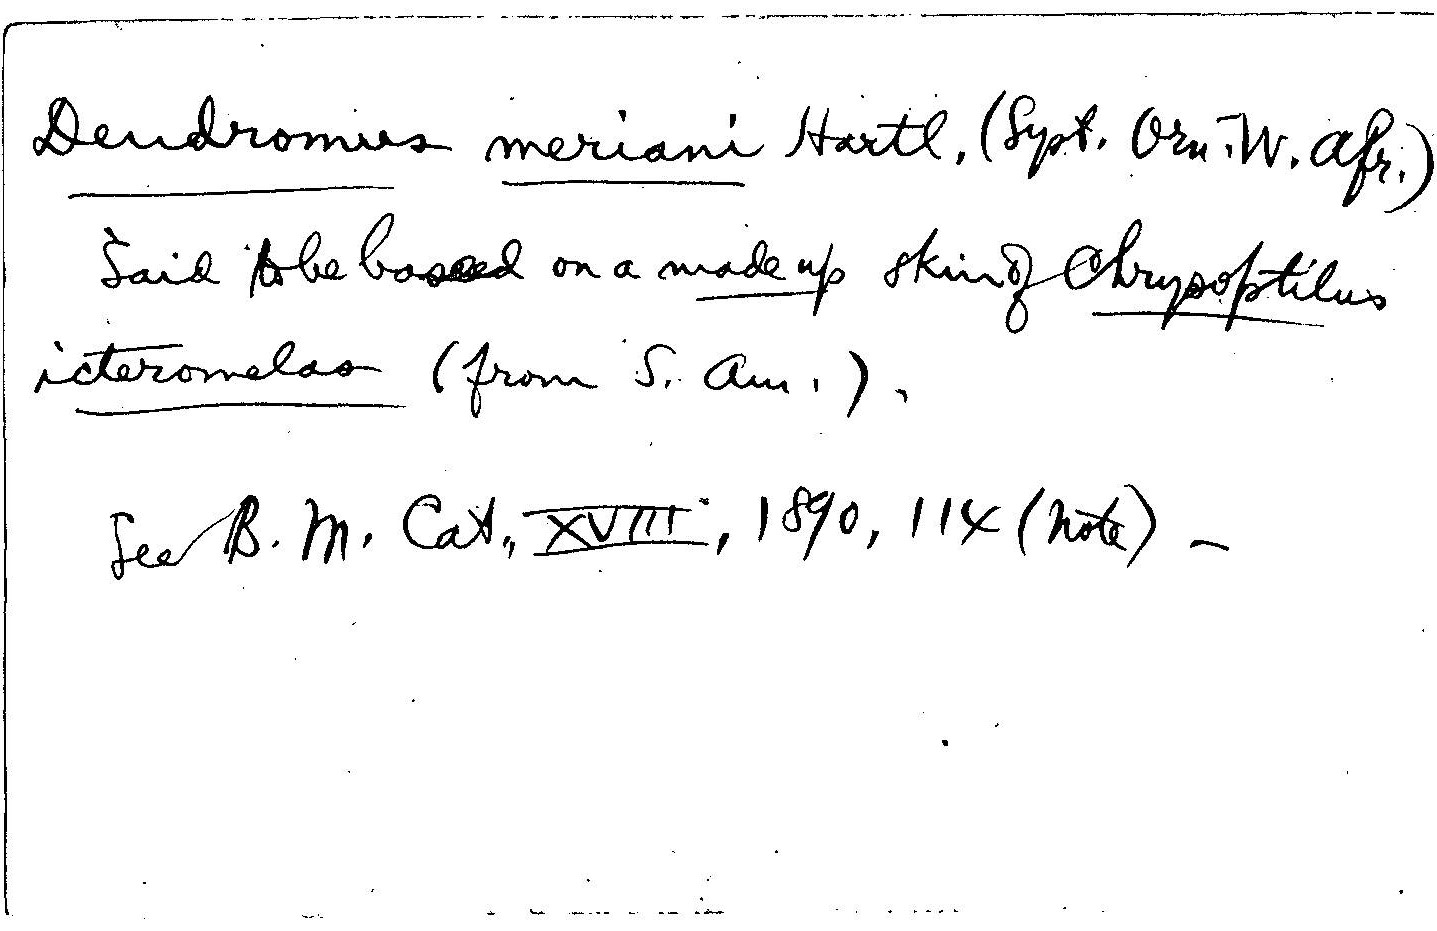 Dendromus meriani Hartl. (Syst. Orn. W. Afr.)
Said to be based on a made up skin of Chrysoptilus
icteromelas (from S. Am.).
See B. M. Cat., XVIII, 1890, 114 (Note) –